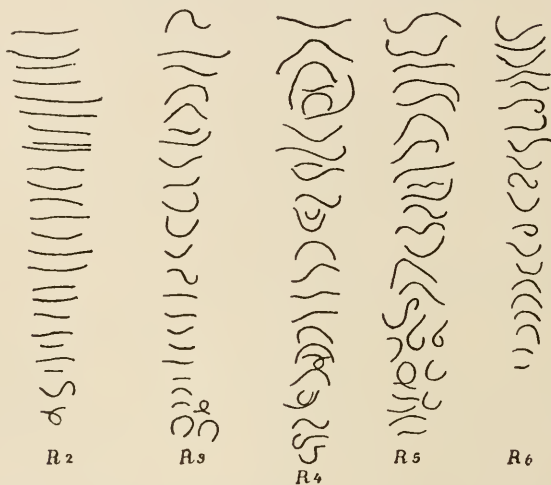 R 2
R 3
R 4
R 5
R 6